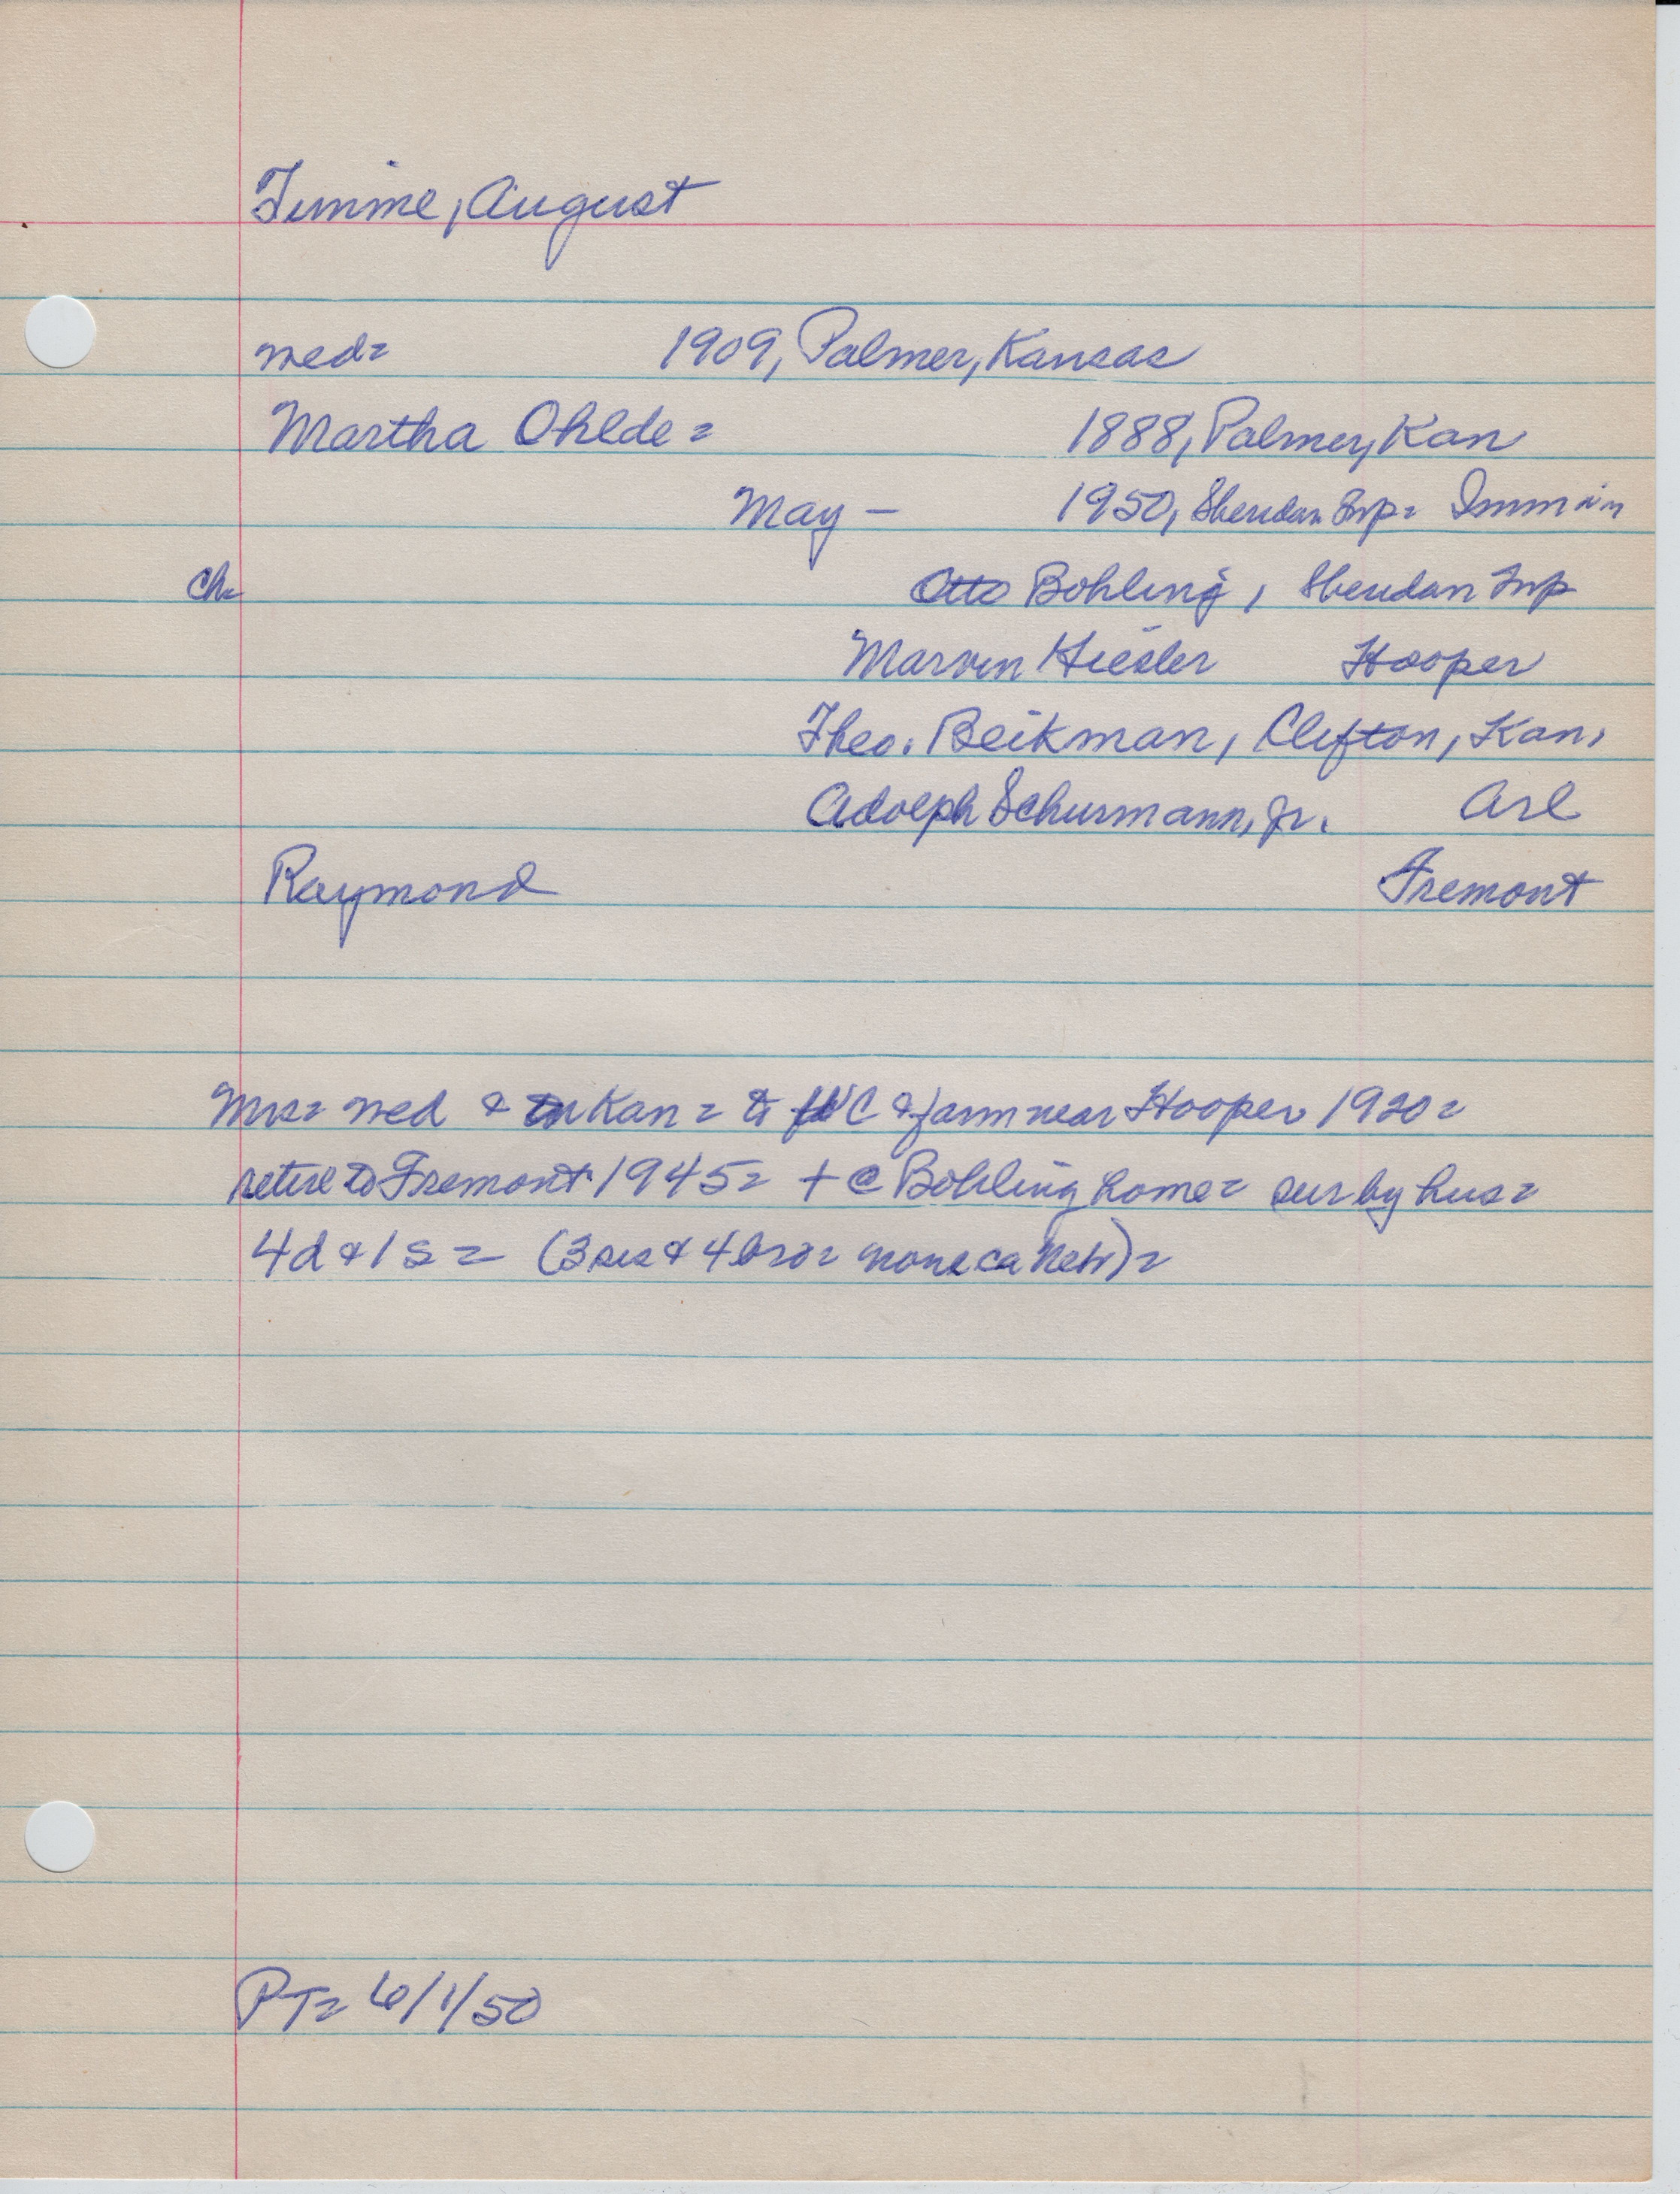 Timme, August
med= 1909, Palmer, Kansas
Martha Ohlde = 1888, Palmer, Kan
May - 1950, Sheridan Twp=
Ch= Otto Bohling, Sheridan Twp
Marvin Hiesler Hooper
Theo. Beikman, Clifton, Kan.
Adolph Schurmann, Jr. Arl
Raymond Fremont
Mrs= med & Kan = to WC & farm near Hooper 1920=
retire to Fremont 1945= + @ Bohling home= sur by hus=
4d & 1s = (3 sis & 4 bro= none ca Neb)=
PT= 6/1/50